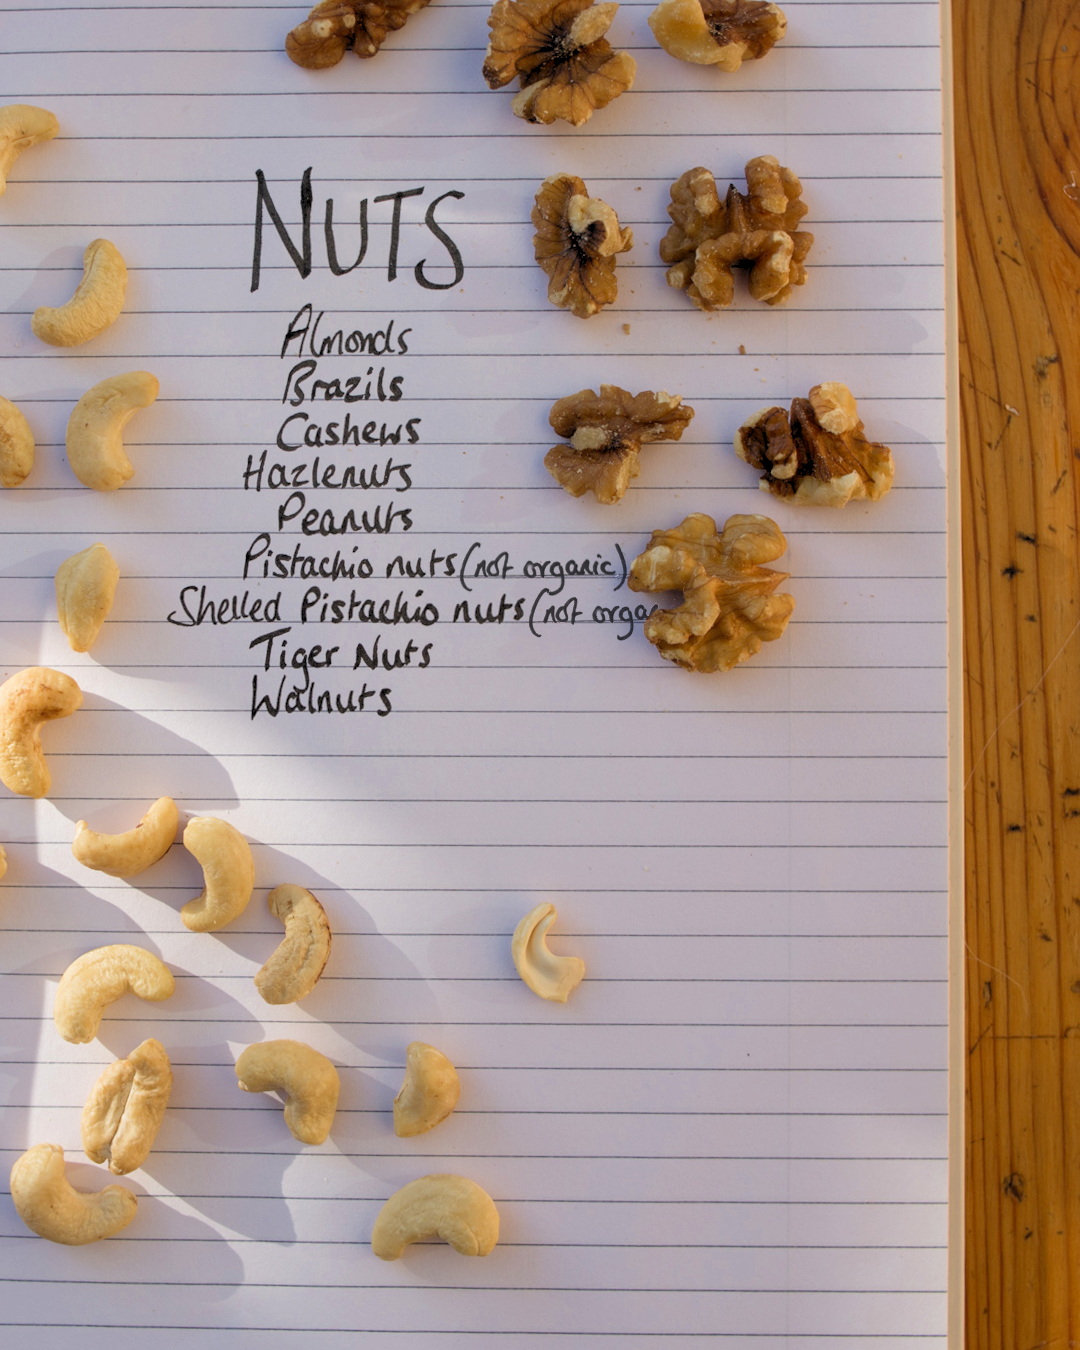 NUTS
Almonds
Brazils
Cashews
Hazlenuts
Peanuts
Pistachio nuts (not organic)
Shelled Pistachio nuts (not orga
Tiger Nuts
Walnuts